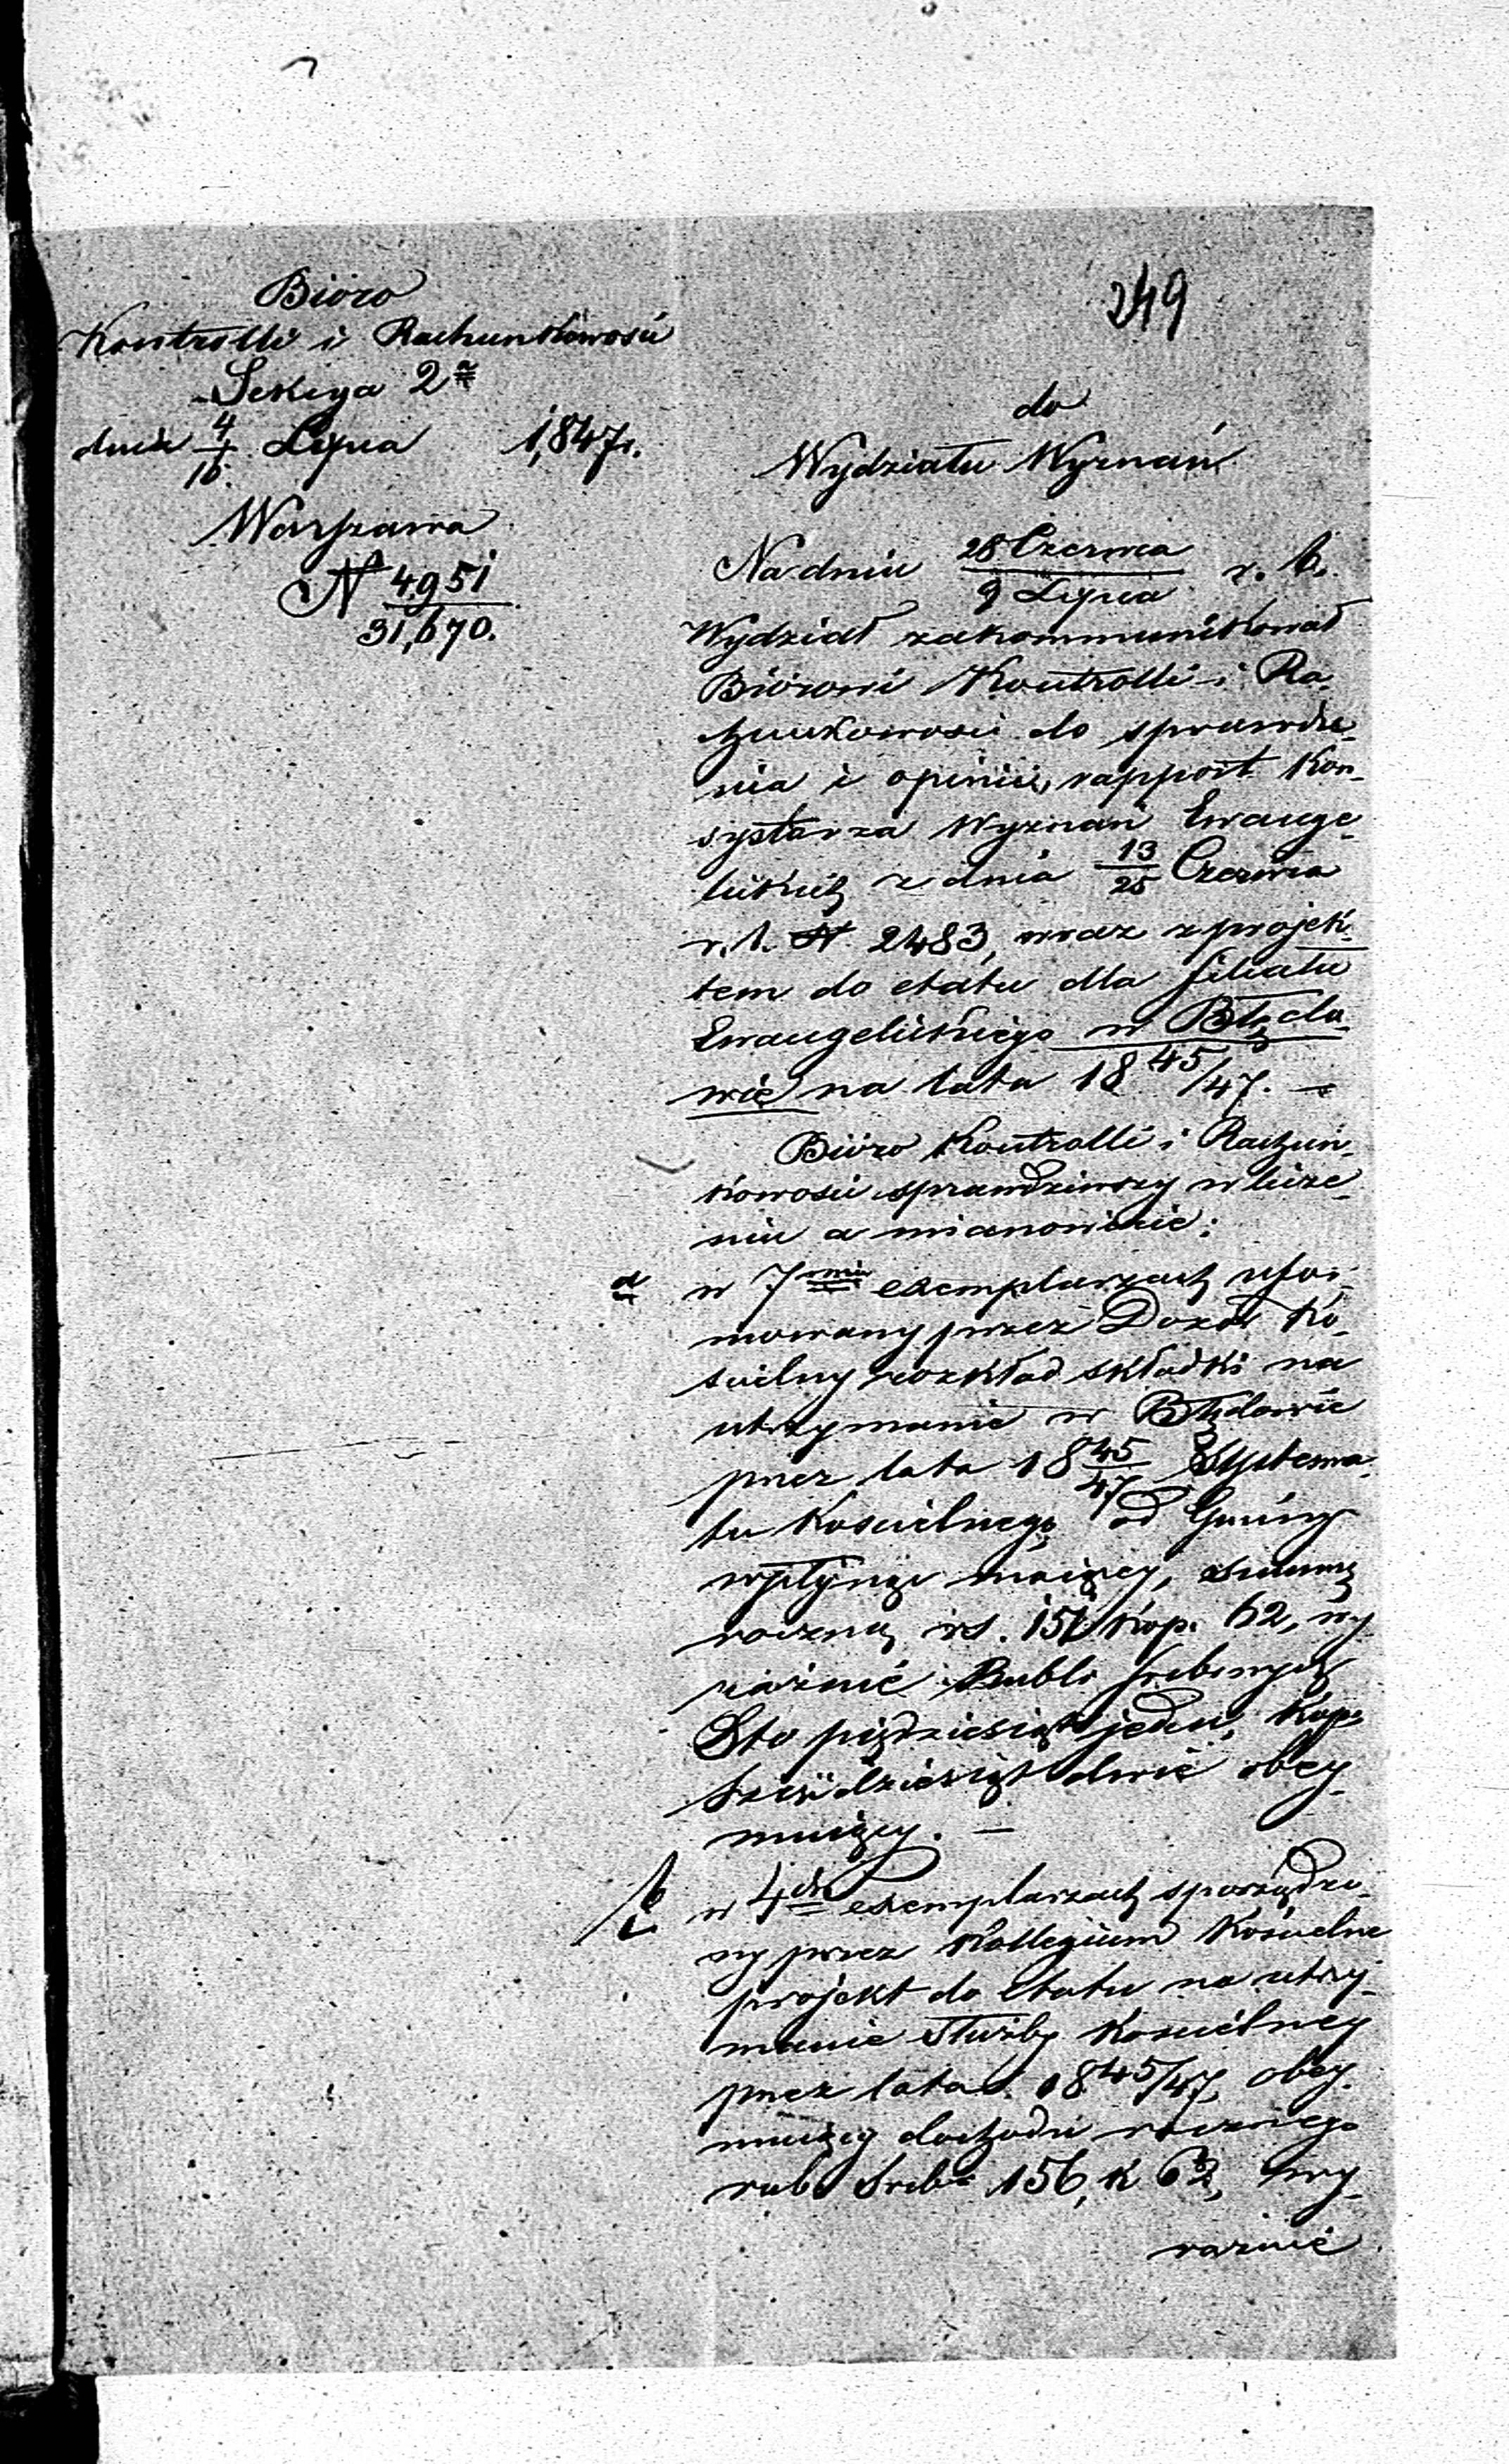 Biöro
Kontrolli i Rachunkowości
Sekcya 2ª
dnia 4/16 Lipca 1,847 r.
Warszawa
N 4951/31,670.
249
do
Wydziału Wyznań
Na dniu 28 Czerwca/9 Lipca r. b.
Wydział zakommunikował
Biórowi Kontrolli i Ra-
chunkowości do sprawdze-
nia i opinii, rapport Kon-
systorza Wyznań Ewange-
lickich z dnia 13/25 Czerwca
r. b. N 2483, wraz z projek-
tem do etatu dla filiału
Ewangelickiego w Błędo-
wie na lata 1845/47. —
Bióro Kontrolli i Rachun-
kowości sprawdziwszy w licze-
niu a mianowicie:
a w 7miu exemplarzach ufor-
mowany przez Dozór Ko-
ścielny rozkład składki na
utrzymanie w Błędowie
przez lata 1845/47 Systema-
tu Kościelnego od Gminy
wpłynąć maiący, summę
roczną rs. 151 Kop. 62, wy
raźnie Rubli srebrnych
Sto pięćdziesiąt jeden, Kop.
sześćdziesiąt dwie obey-
muiący. —
b w 4ch exemplarzach sporządzo-
ny przez Kollegium Kościelne
projekt do etatu na utrzy-
manie Służby Kościelney
przez lata 1845/47, obey-
muiący dochodu rocznego
rub. Sreb. 156, k 62, wy-
raźnie